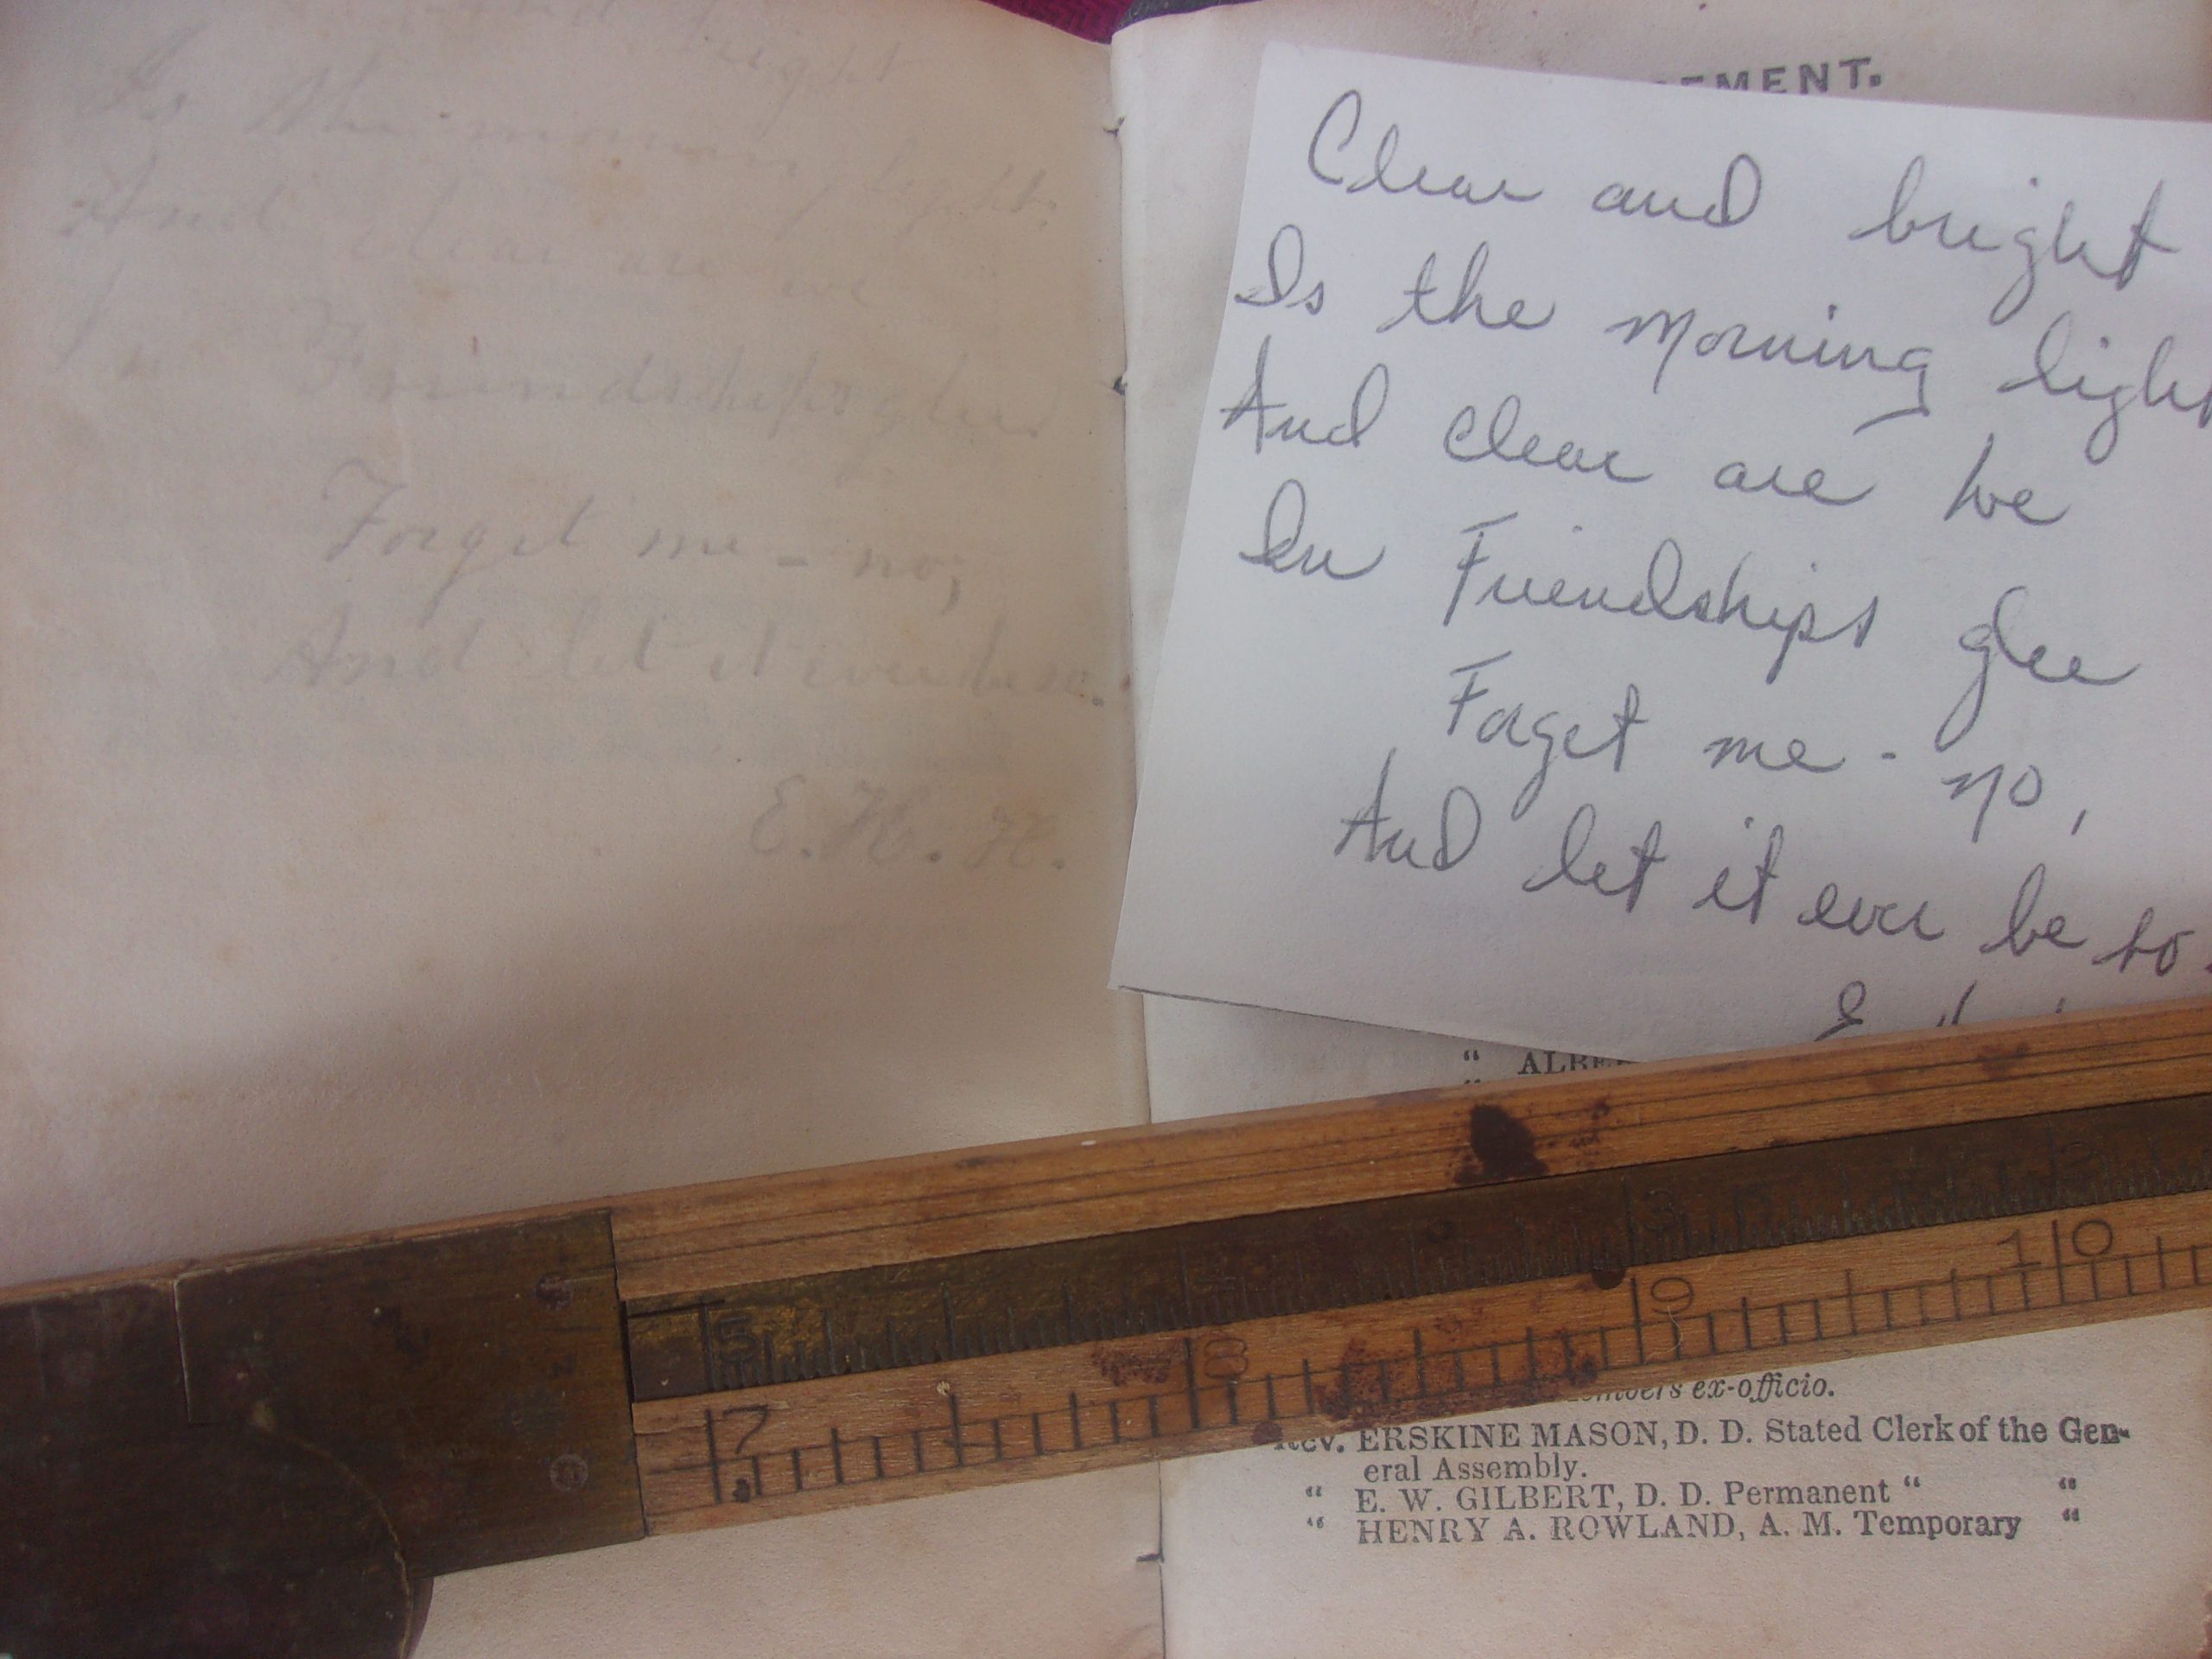 and bright
Is the morning light
And clear are we
In Friendships glee
Forget me - no;
And let it ever be so.
E. H. H.
EMENT.
Clear and bright
Is the morning light
And clear are we
In Friendships glee
Forget me - no,
And let it ever be so.
" ALBE
5 3 2
7 8 9 10
members ex-officio.
Rev. ERSKINE MASON, D. D. Stated Clerk of the Gen-
eral Assembly.
" E. W. GILBERT, D. D. Permanent " "
" HENRY A. ROWLAND, A. M. Temporary "